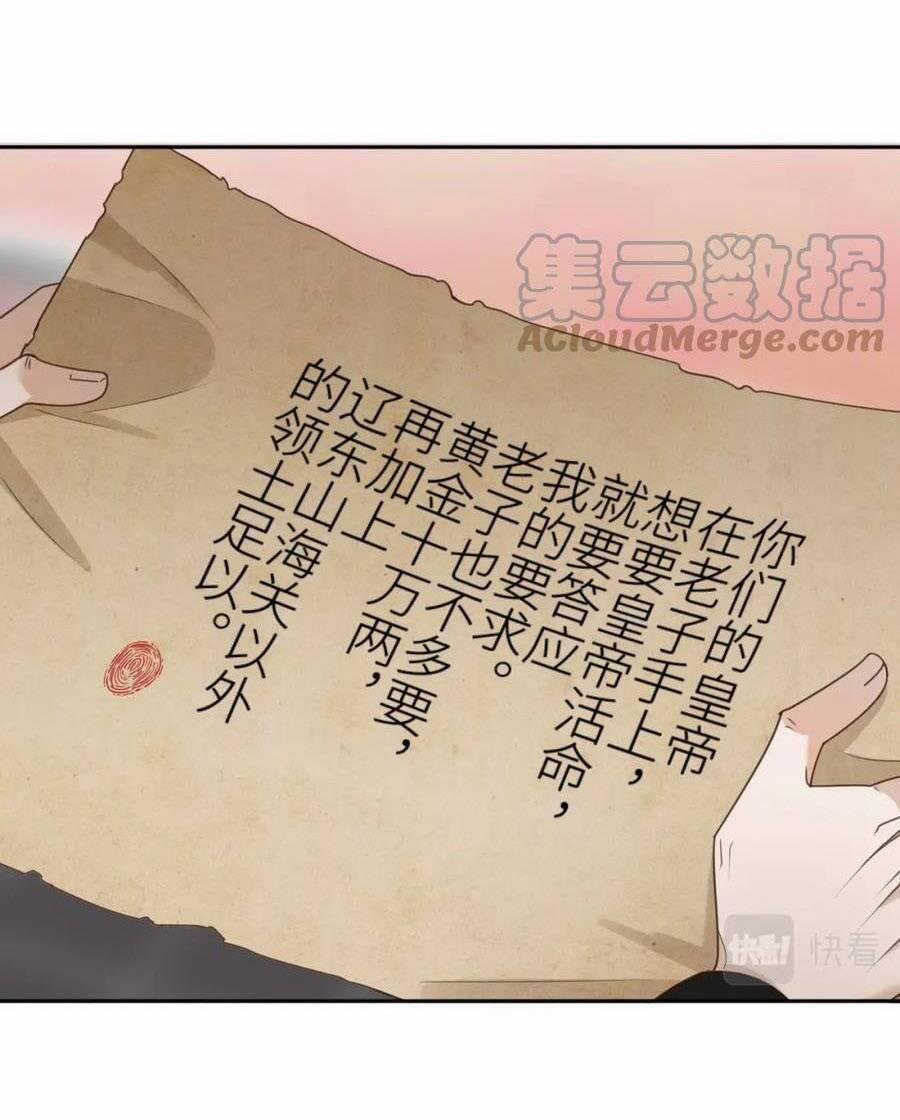 集云数据
ACloudMerge.com
你们的皇帝
在老子手上，
想要皇帝活命，
就要答应
我的要求。
老子也不多要，
黄金十万两，
再加上
辽东山海关以外
的领土足以。
快看!
快看